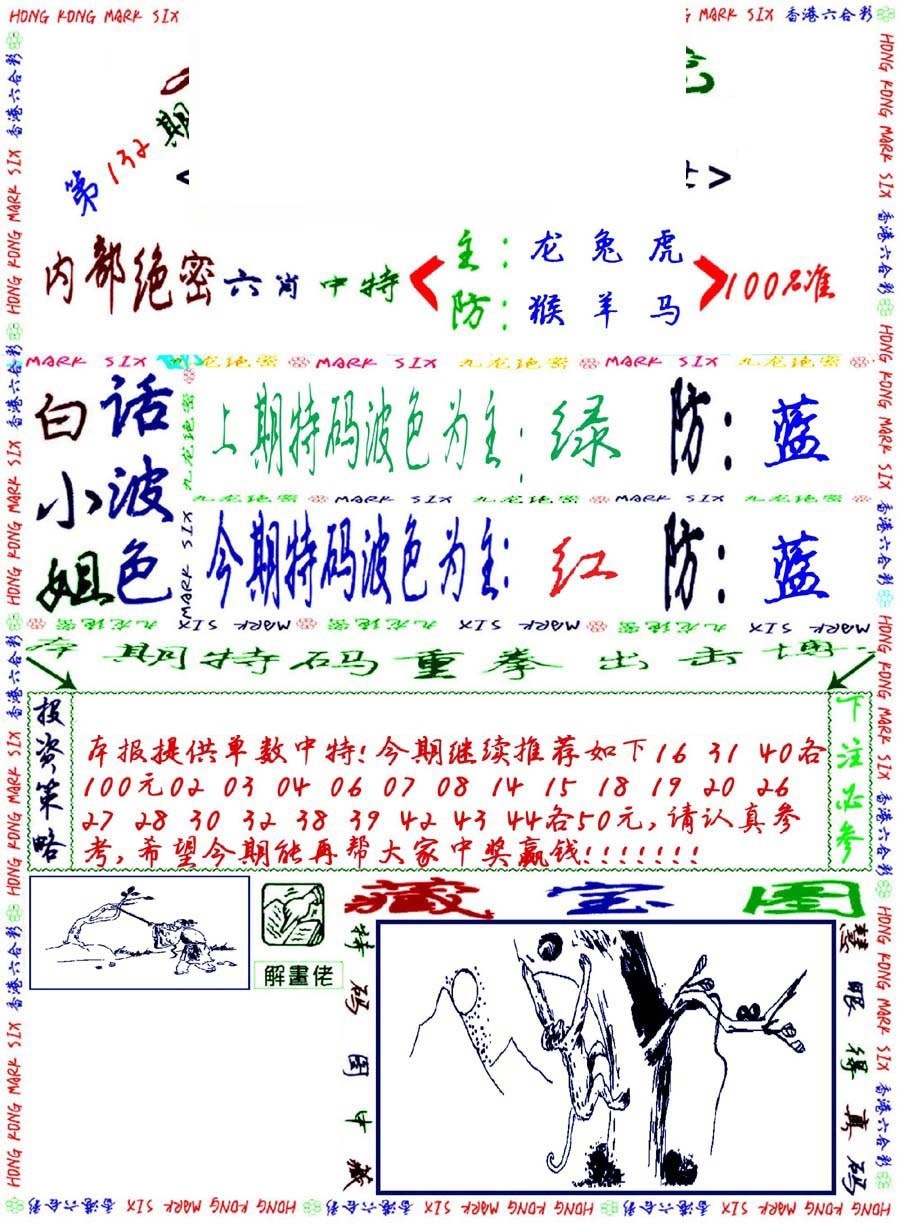 HONG KONG MARK SIX
MARK SIX 香港六合彩
第132期
内部绝密六肖中特
主：龙兔虎
防：猴羊马
100%准
白话小波姐色
上期特码波色为主：绿 防：蓝
今期特码波色为主：红 防：蓝
MARK SIX 九龙绝密 MARK SIX 九龙绝密 MARK SIX 九龙绝密
九龙绝密 MARK SIX 九龙绝密 MARK SIX 九龙绝密
期特码重拳出击
投资策略
本报提供单数中特！今期继续推荐如下16 31 40各
100元02 03 04 06 07 08 14 15 18 19 20 26
27 28 30 32 38 39 42 43 44各50元，请认真参
考，希望今期能再帮大家中奖赢钱！！！！！！！
下注必参
藏宝图
解畫佬
特码图中藏
慧眼得真码